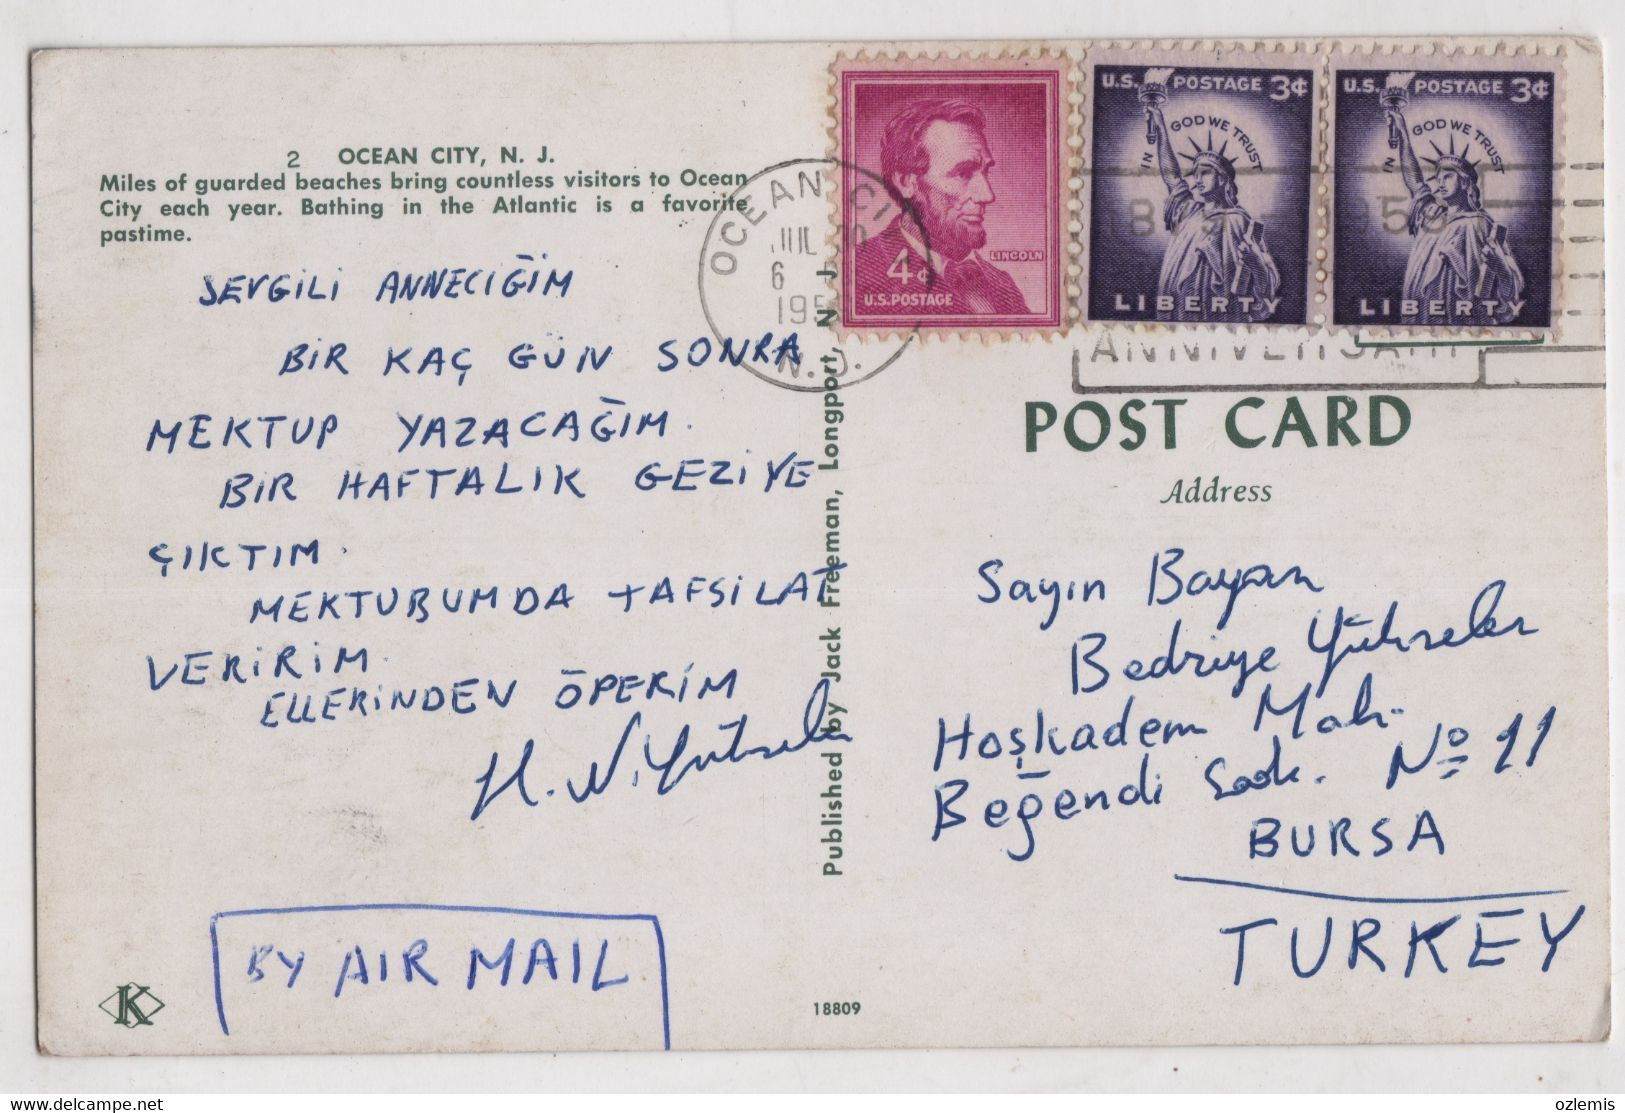 2 OCEAN CITY, N. J.
Miles of guarded beaches bring countless visitors to Ocean
City each year. Bathing in the Atlantic is a favorite
pastime.
SEVGİLİ ANNECİĞİM
BİR KAÇ GÜN SONRA
MEKTUP YAZACAĞIM.
BİR HAFTALIK GEZİYE
ÇIKTIM.
MEKTUBUMDA TAFSİLAT
VERİRİM.
ELLERİNDEN ÖPERİM
H. N. Yükseler
BY AIR MAIL
K
18809
Published by Jack Freeman, Longport, N. J.
OCEAN CI
JUL
6
195
N.J.
LINCOLN
4¢
U.S. POSTAGE
U.S. POSTAGE 3¢
IN GOD WE TRUST
LIBERTY
U.S. POSTAGE 3¢
IN GOD WE TRUST
LIBERTY
ANNIVERSARY
POST CARD
Address
Sayın Bayan
Bedriye Yükseler
Hoşkadem Mah.
Beğendi Sok. No 11
BURSA
TURKEY
ozlemis
https://www.delcampe.net